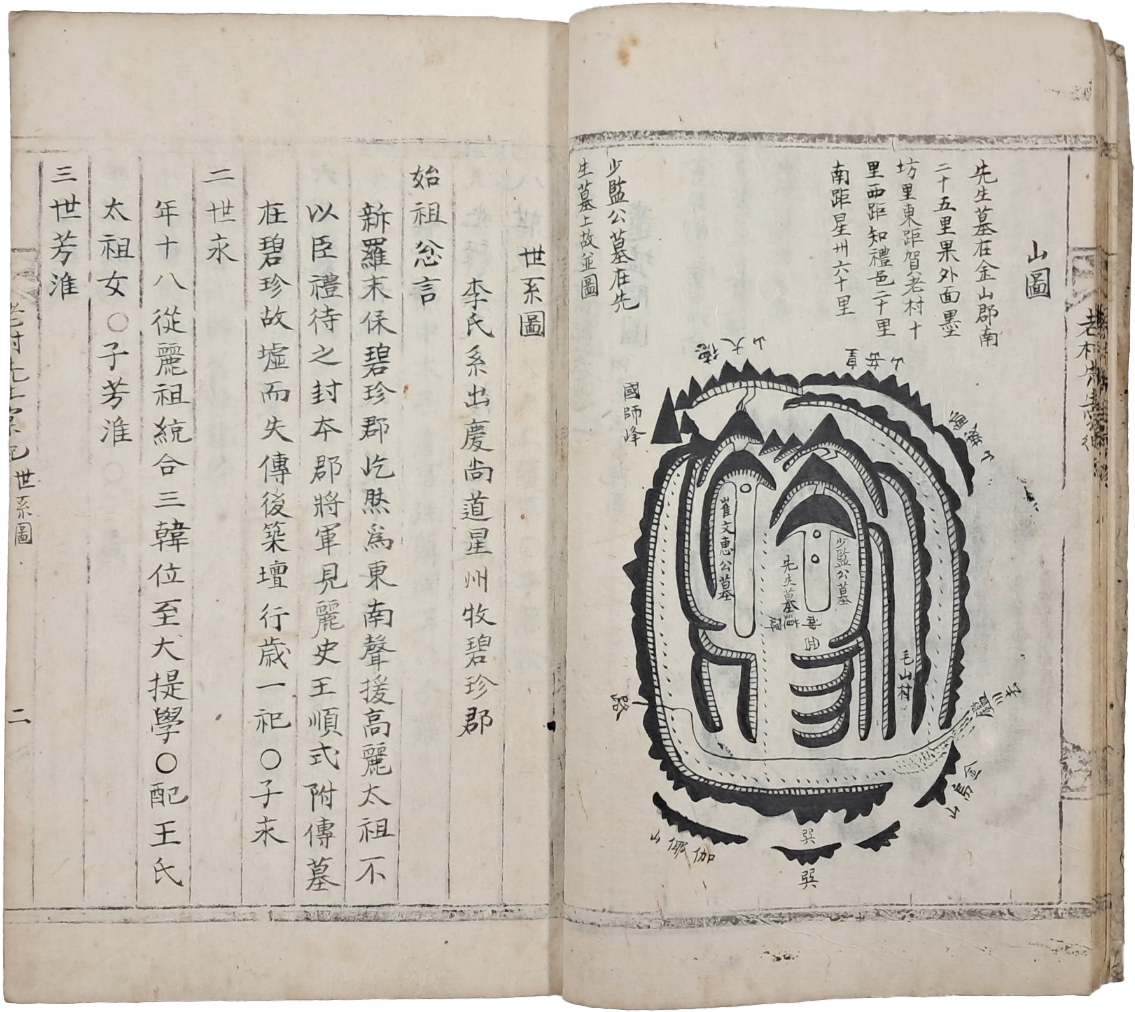 山圖
先生墓在金山郡南
二十五里果外面墨
坊里東距賀老村十
里西距知禮邑二十里
南距星州六十里
少監公墓在先
生墓上故並圖
大德山
國師峰
崔文惠公墓
少監公墓
先生墓
毛山村
路
金烏山
伽倻山
巽
巽
世系圖
李氏系出慶尚道星州牧碧珍郡
始祖忩言
新羅末保碧珍郡屹然爲東南聲援高麗太祖不
以臣禮待之封本郡將軍見麗史王順式附傳墓
在碧珍故墟而失傳後築壇行歲一祀〇子永
二世永
年十八從麗祖統合三韓位至大提學〇配王氏
太祖女〇子芳淮
三世芳淮
世系圖
二